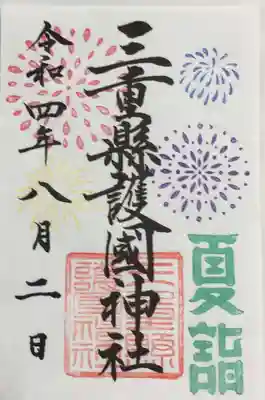 夏詣
三重縣護國神社
令和四年八月二日